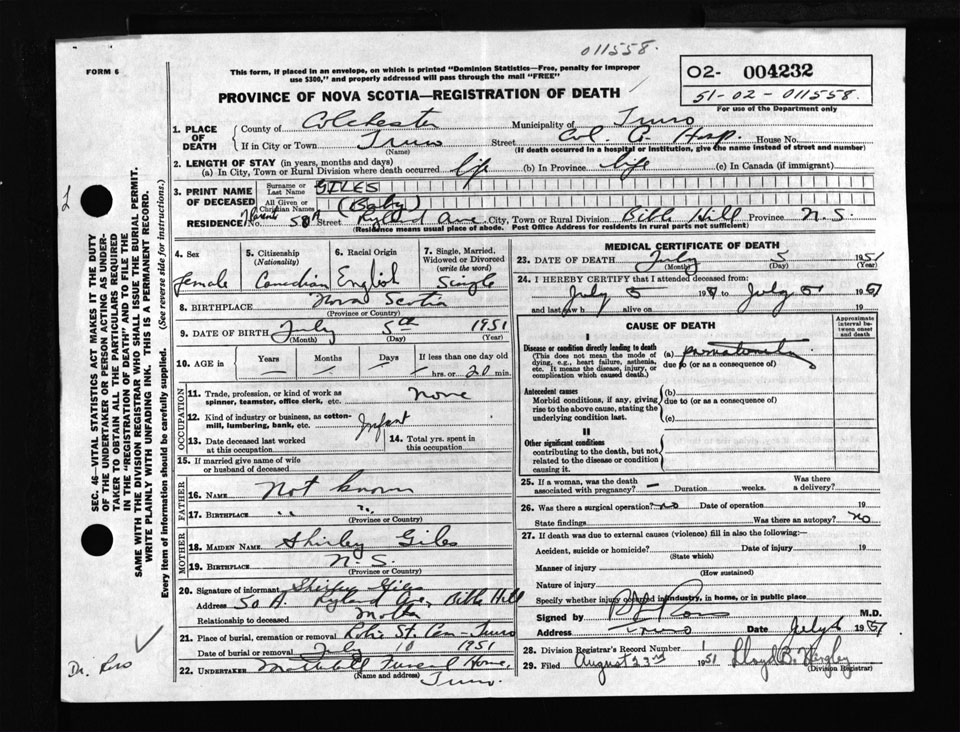 011558.
FORM 6
This form, if placed in an envelope, on which is printed "Dominion Statistics—Free, penalty for improper
use $300," and properly addressed will pass through the mail "FREE"
02- 004232
51-02-011558.
For use of the Department only
PROVINCE OF NOVA SCOTIA—REGISTRATION OF DEATH
1. PLACE OF DEATH
County of Colchester Municipality of Truro
If in City or Town Truro Street Col. Co. Hosp. House No.
(Name) (If death occurred in a hospital or institution, give the name instead of street and number)
2. LENGTH OF STAY (in years, months and days)
(a) In City, Town or Rural Division where death occurred life (b) In Province life (c) In Canada (if immigrant)
3. PRINT NAME OF DECEASED
Surname or Last Name GILES
All Given or Christian Names (Baby)
RESIDENCE No. 50 A Street Ryland Ave. City, Town or Rural Division Bible Hill Province N.S.
(Residence means usual place of abode. Post Office Address for residents in rural parts not sufficient)
4. Sex
female
5. Citizenship (Nationality)
Canadian
6. Racial Origin
English
7. Single, Married, Widowed or Divorced (write the word)
Single
8. BIRTHPLACE Nova Scotia
(Province or Country)
9. DATE OF BIRTH July 5th 1951
(Month) (Day) (Year)
10. AGE in
Years Months Days If less than one day old
hrs. or 20 min.
OCCUPATION
11. Trade, profession, or kind of work as
spinner, teamster, office clerk, etc. none
12. Kind of industry or business, as cotton-
mill, lumbering, bank, etc. Infant
13. Date deceased last worked
at this occupation
14. Total yrs. spent in
this occupation
15. If married give name of wife
or husband of deceased
FATHER
16. NAME Not known
17. BIRTHPLACE " "
(Province or Country)
MOTHER
18. MAIDEN NAME Shirley Giles
19. BIRTHPLACE N.S.
(Province or Country)
20. Signature of informant Shirley Giles
Address 50 A. Ryland Ave, Bible Hill
Relationship to deceased Mother
21. Place of burial, cremation or removal Robie St. Cem-Truro
Date of burial or removal July 10 1951
22. UNDERTAKER Mattatall Funeral Home,
(Name and address) Truro.
MEDICAL CERTIFICATE OF DEATH
23. DATE OF DEATH July 5 1951
(Month) (Day) (Year)
24. I HEREBY CERTIFY that I attended deceased from:
July 5 1951 to July 5 1951
and last saw h alive on 19
CAUSE OF DEATH
Approximate interval between onset and death
I
Disease or condition directly leading to death
(This does not mean the mode of
dying, e.g., heart failure, asthenia,
etc. It means the disease, injury, or
complication which caused death.)
(a) prematurity
due to (or as a consequence of)
Antecedent causes
Morbid conditions, if any, giving
rise to the above cause, stating the
underlying condition last.
(b)
due to (or as a consequence of)
(c)
II
Other significant conditions
contributing to the death, but not
related to the disease or condition
causing it.
25. If a woman, was the death
associated with pregnancy? — Duration weeks. Was there
a delivery?
26. Was there a surgical operation? no Date of operation 19
State findings Was there an autopsy? no
27. If death was due to external causes (violence) fill in also the following:—
Accident, suicide or homicide? Date of injury 19
(State which)
Manner of injury
(How sustained)
Nature of injury
Specify whether injury occurred in industry, in home, or in public place
Signed by M.D.
Address Truro Date July 6 1951
28. Division Registrar's Record Number
29. Filed August 23rd 1951 Lloyd B.
(Division Registrar)
SEC. 46—VITAL STATISTICS ACT MAKES IT THE DUTY
OF THE UNDERTAKER OR PERSON ACTING AS UNDER-
TAKER TO OBTAIN ALL THE PARTICULARS REQUIRED
IN THE "REGISTRATION OF DEATH" AND TO FILE THE
SAME WITH THE DIVISION REGISTRAR WHO SHALL ISSUE THE BURIAL PERMIT.
WRITE PLAINLY WITH UNFADING INK. THIS IS A PERMANENT RECORD.
Every item of information should be carefully supplied. (See reverse side for instructions.)
Dr.